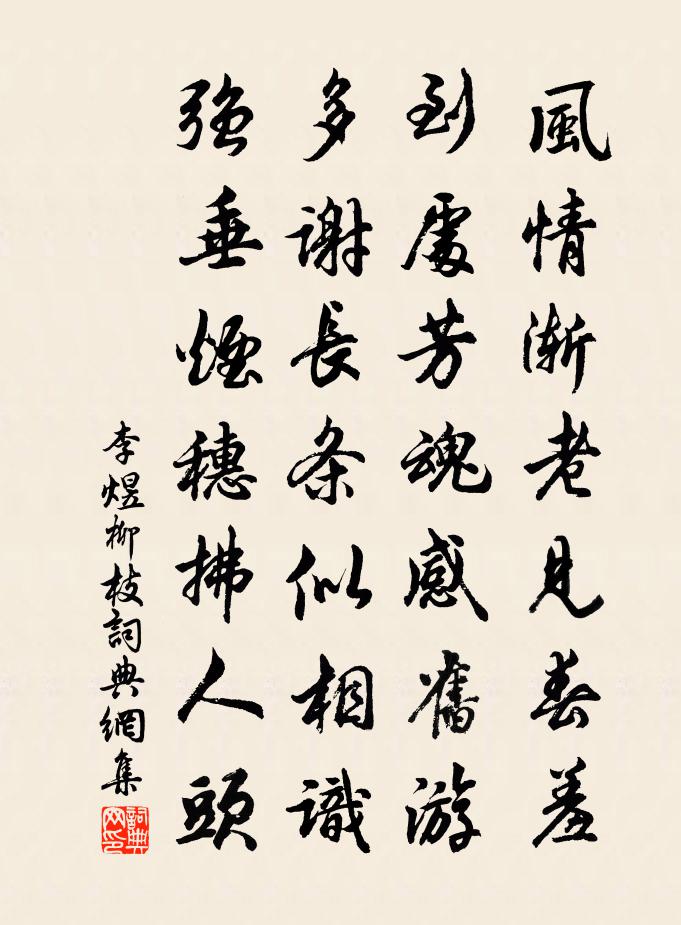 風情漸老見春羞
到處芳魂感舊游
多謝長条似相識
強垂煙穗拂人頭
李煜柳枝詞典網集
詞典網印